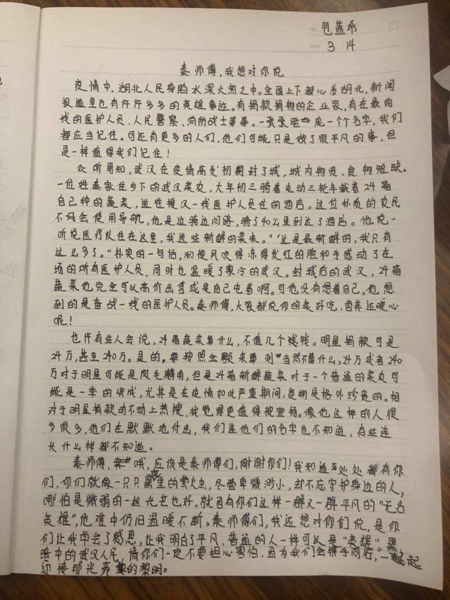 包蕴希
3 14
秦师傅,我想对你说
疫情中,湖北人民身陷水深火热之中。全国上下都心系湖北,新闻
报道里也有许许多多的英雄事迹。有捐款捐物的企业家,有在最前
线的医护人员、人民警察、消防战士等等。一张张脸庞一个个名字,我们
都应当记住。可还有更多的人们,他们可能只是做了很平凡的事,但
是一样值得我们记住!
众所周知,武汉在疫情高发初期封了城,城内物资、食物短缺。
一位姓秦家住乡下的武汉菜农,大年初三骑着电动三轮车载着24箱
自己种的蔬菜,送往援汉一线医护人员住的酒店。这位朴质的农民
不会使用导航,他是边骑边问路,骑了40公里到达了酒店。他说,"
听说医疗队住在这里,我送些新鲜的菜来。""这是最新鲜的,我只有
这么多了。"朴实的一句话,和被风吹得冻得发红的脸和手感动了在
场的所有医护人员,同时也温暖了寒冷的武汉。封城后的武汉,24箱
蔬菜他完全可以高价出售或是自己屯着啊。可他没有想着自己,他想
到的是奋战一线的医护人员。秦师傅,大家都说你的菜好吃,营养还暖心
呢!
也许有些人会说,24箱蔬菜算什么,不值几个钱钱。明星捐款可是
24万,甚至240万。是的。要按照金额来算 当然不算什么,24万或者240
万对于明星可能是凤毛麟角,但是24箱新鲜蔬菜对于一个普通的菜农可
能是一季的收成,尤其是在疫情如此严重期间,食物是格外珍贵的。相
对于明星捐款动不动上热搜,我觉得更值得被宣扬。像他这样的人很
多很多,他们在默默地付出,我们连他们的名字也不知道,有些连
长什么样都不知道。
秦师傅,哦,应该是秦师傅们,谢谢你们!我知道处处都有你
们,你们就像一只只黑夜里的萤火虫,尽管卑微渺小,却不忘守护身边的人,
哪怕是微弱的一丝光芒也好。就因有你们这样一群又一群平凡的"无名
英雄",危难中仍旧温暖不断。秦师傅们,我还想对你们说,是你
们让我学会了感恩,让我明白了平凡、普通的人一样可以是"英雄"
暗中的武汉人民,请你们一定不要担心害怕,因为我们会携手同行,一起
迎接那光的黎明。